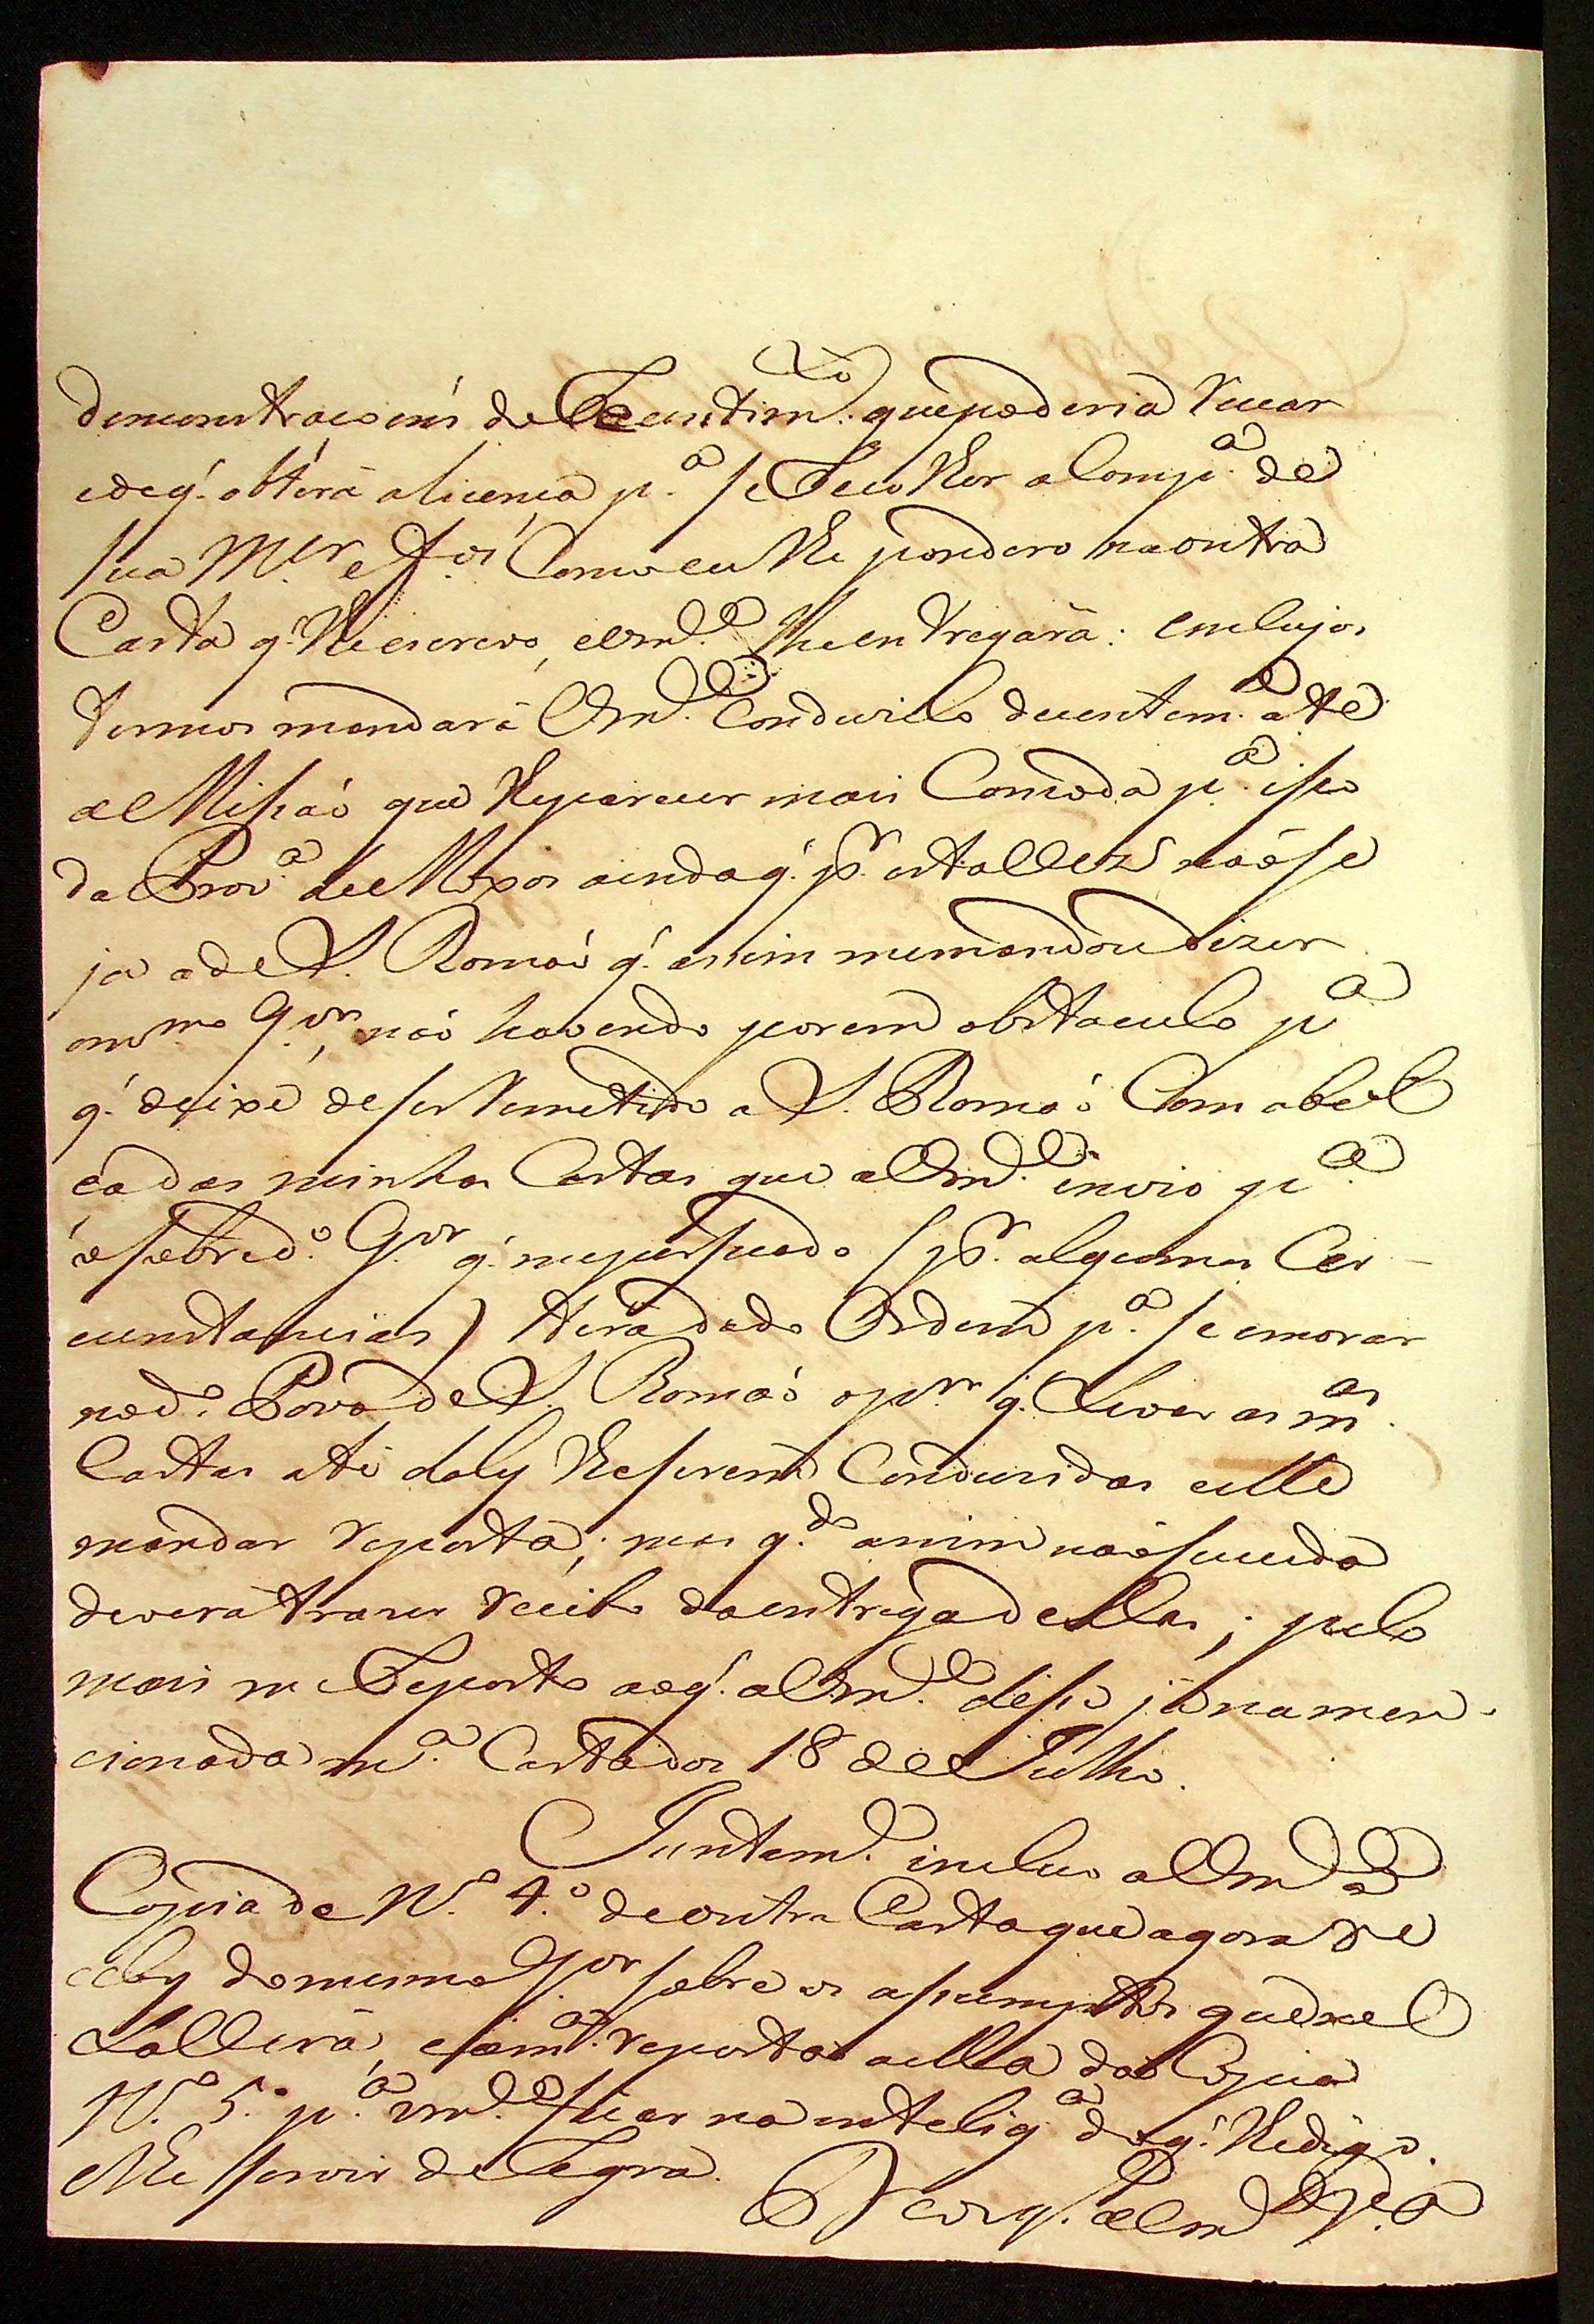 demonstraçoens de Sentim.to que poderia recear
e de q.' obterá a licença p.a se recolher a Comp.a de
sua M.er e f.os Como eu lhe pondero na outra
Carta q.' lhe escrevo, e Vm.ce lhe entregará: em cujos
termos mandará Vm.ce Conduzilo decentem.e até
a Missaõ que lhe parecer mais Comoda p.a isso
da Prov.a de Moxos ainda q.' p.r esta vez naõ se
ja a de S. Romaõ q.' assim me mandou dizer
o m.mo G.or, naõ havendo porem obstaculo p.a
q.' deixe de ser remetido a S. Romaõ Com
das minhas Cartas que a Vm.ce envio p.a
o sobred.o G.or q.' me persuado (p.r algumas Cir-
cunstancias) terá dado Ordem p.a se
no d.o Povo de S. Romaõ o p.or q.' levar as m.as
Cartas até daly lhe serem Conduzidas e elle
mandar reposta; mas q.do assim naõ suceda
deverá trazer recibo da entrega dellas; pelo
mais me reporto ao q.' a Vm.ce disse já na men-
cionada m.a Carta dos 18 de Julho.
Juntam.e incluo a Vm.ce a
Copia de N.o 4.o de outra Carta que agora re
ceby do mesmo G.or sobre os assumptos que nel
la verá, e a m.a reposta a ella da Copia
N.o 5.o p.a Vm.ce ficar na intelig.a do q.' lhe digo
e lhe servir de regra.
D.s g.e a Vm.ce